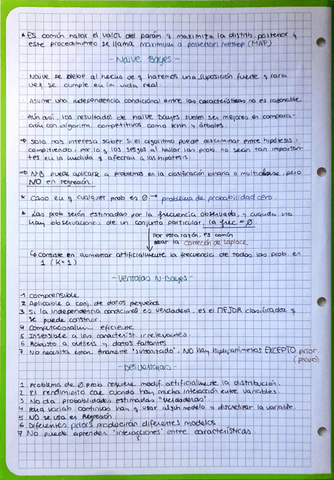 * Es común hallar el valor del parám q maximiza la distrib. posterior y
este procedimiento se llama maximum a posteriori method (MAP)
- Naive Bayes -
Naive se debe al hecho de q haremos una suposición fuerte y rara
vez se cumple en la vida real
Asumir una independencia condicional entre las características no es razonable
Aún así, los resultados de naive bayes suelen ser mejores en compara-
ción con algoritm. competitivos como knn y árboles
→ Solo nos interesa saber si el algoritmo puede discriminar entre hipótesis
competitivas, y los sesgos al hallar las prob. no serán tan importan-
tes en la medida q afectan a las hipótesis
→ N-B puede aplicar a problemas en la clasificación binaria o multiclase, pero
NO en regresión.
* Caso en q cualquier prob es 0 → problema de probabilidad cero.
* Las prob serán estimadas por la frecuencia observada, y cuando no
hay observaciones de un conjunto particular, la frec = 0
Por esta razón, es común
usar la corrección de laplace
↳ Consiste en aumentar artificialmente la frecuencia de todas las prob. en
1 (K=1)
- Ventajas N-Bayes -
1 comprensible
2 Aplicable a conj. de datos pequeños
3 Si la independencia condicional es verdadera, es el MEJOR clasificador q
se puede construir.
4 Computacionalm. eficiente
5 Insensible a las caracterist irrelevantes
6 Robusto a outliers y datos faltantes
7 No necesita estar finamente "sintonizado". NO hay hiperparámetros EXCEPTO prior
- Desventajas -
1 Problema de 0 prob requiere modif. artificialmente la distribución.
2 El rendimiento cae cuando hay mucha interacción entre variables
3 No da probabilidades estimadas "verdaderas"
4 Para variab continuas hay q usar algún modelo o discretizar la variable
5 NO se usa en Regresión
6 Diferentes priors producirán diferentes modelos
7 No puede aprender "interacciones" entre características.